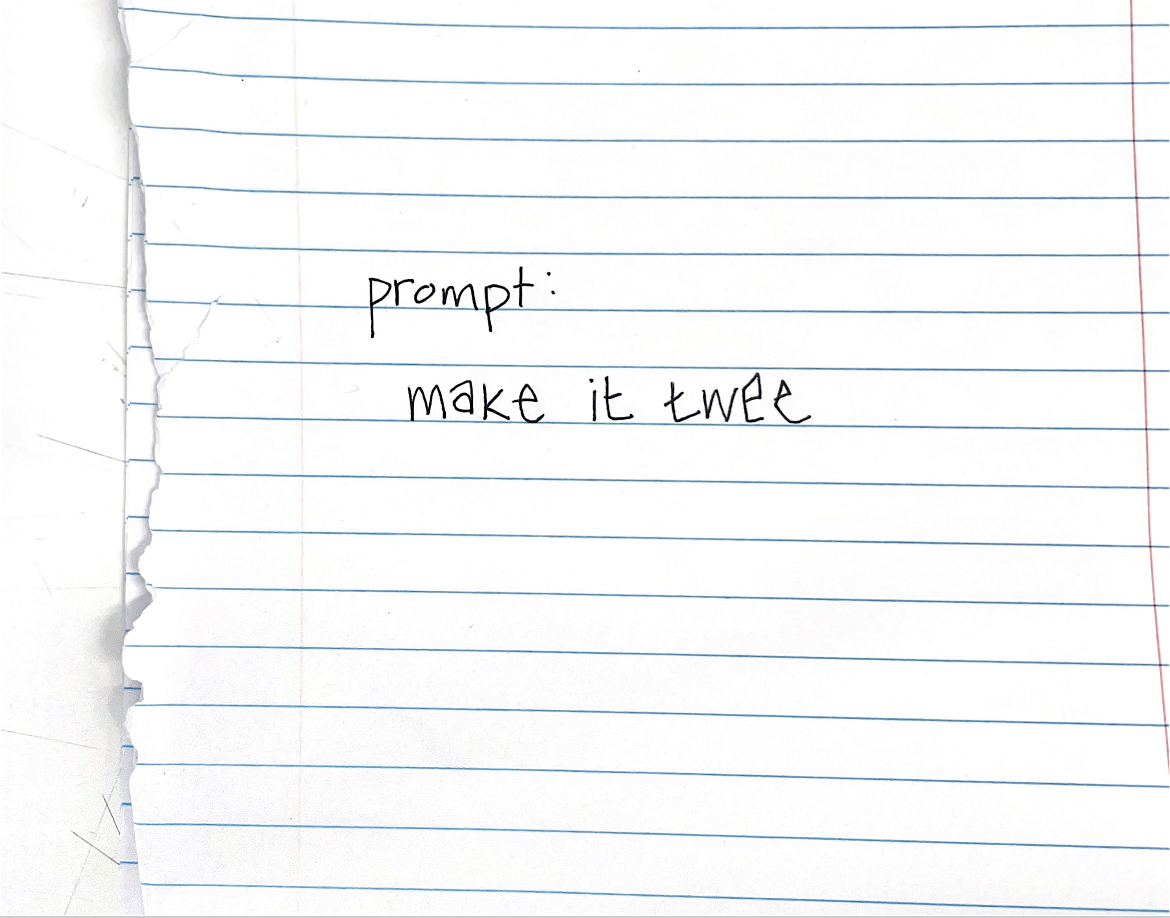 prompt:
make it twee